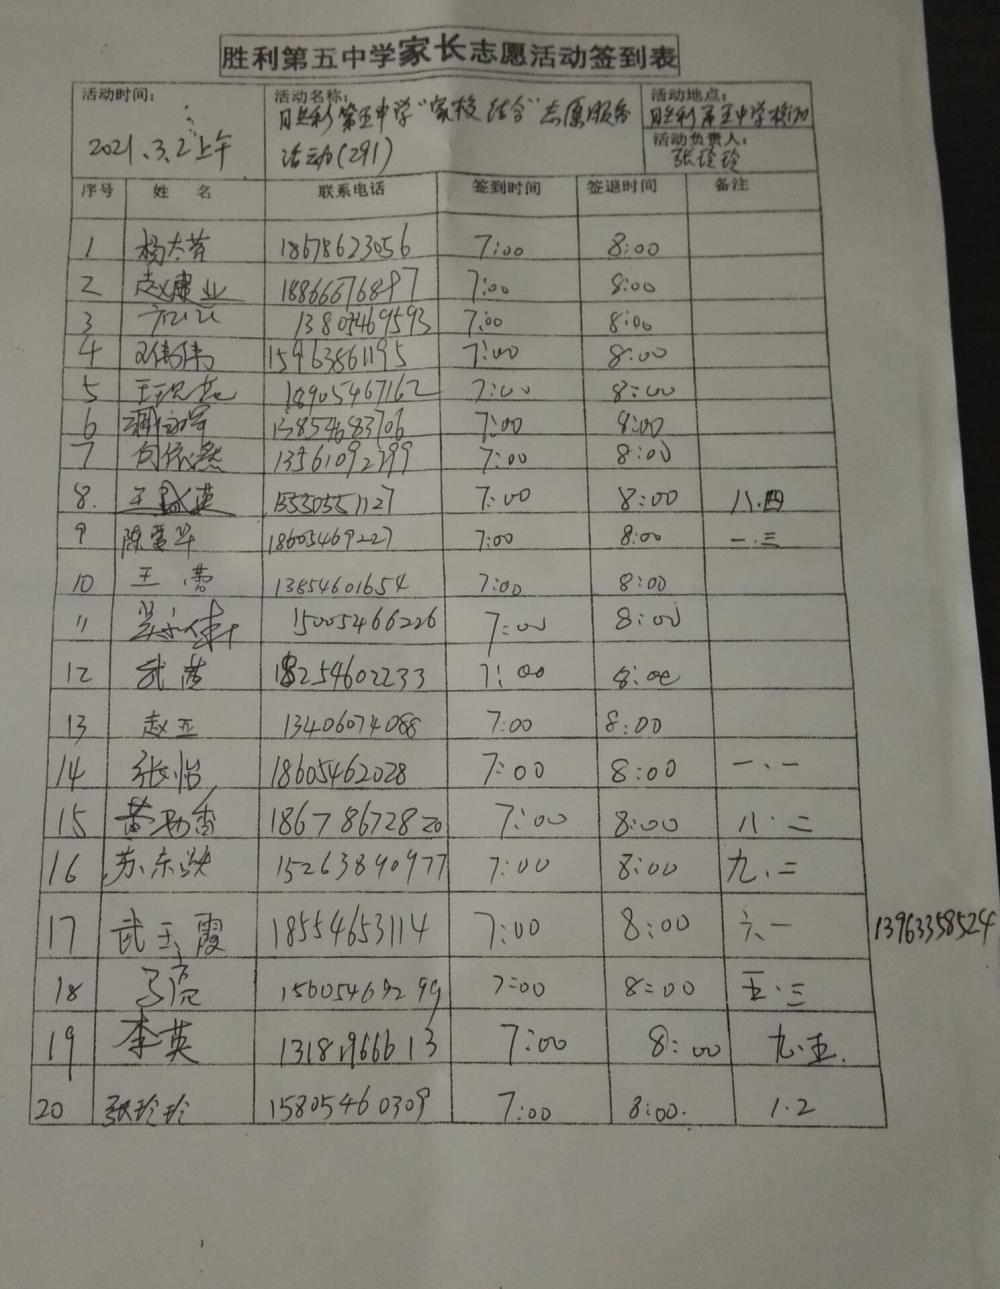 胜利第五中学家长志愿活动签到表
活动时间: 2021.3.2上午
活动名称: 胜利第五中学"家校结合"志愿服务
活动(291)
活动地点: 胜利第五中学校门口
活动负责人: 张玲玲
序号 姓名 联系电话 签到时间 签退时间 备注
1 18678623056 7:00 8:00
2 赵建业 18866676897 7:00 8:00
3 13807469593 7:00 8:00
4 15963861195 7:00 8:00
5 18905467162 7:00 8:00
6 13854683706 7:00 8:00
7 13561092799 7:00 8:00
8. 15550551127 7:00 8:00 八.四
9 陈雪华 18603469227 7:00 8:00 一.三
10 13854601654 7:00 8:00
11 15005466226 7:00 8:00
12 18254602233 7:00 8:00
13 赵亚 13406074088 7:00 8:00
14 张怡 18605462028 7:00 8:00 一.一
15 186786728 20 7:00 8:00 八.二
16 15263890977 7:00 8:00 九.二
17 武玉霞 18554653114 7:00 8:00 六.一 13963358524
18 15605469299 7:00 8:00 五.三
19 李英 13181966613 7:00 8:00 九.五.
20 张玲玲 15805460309 7:00 8:00. 1.2